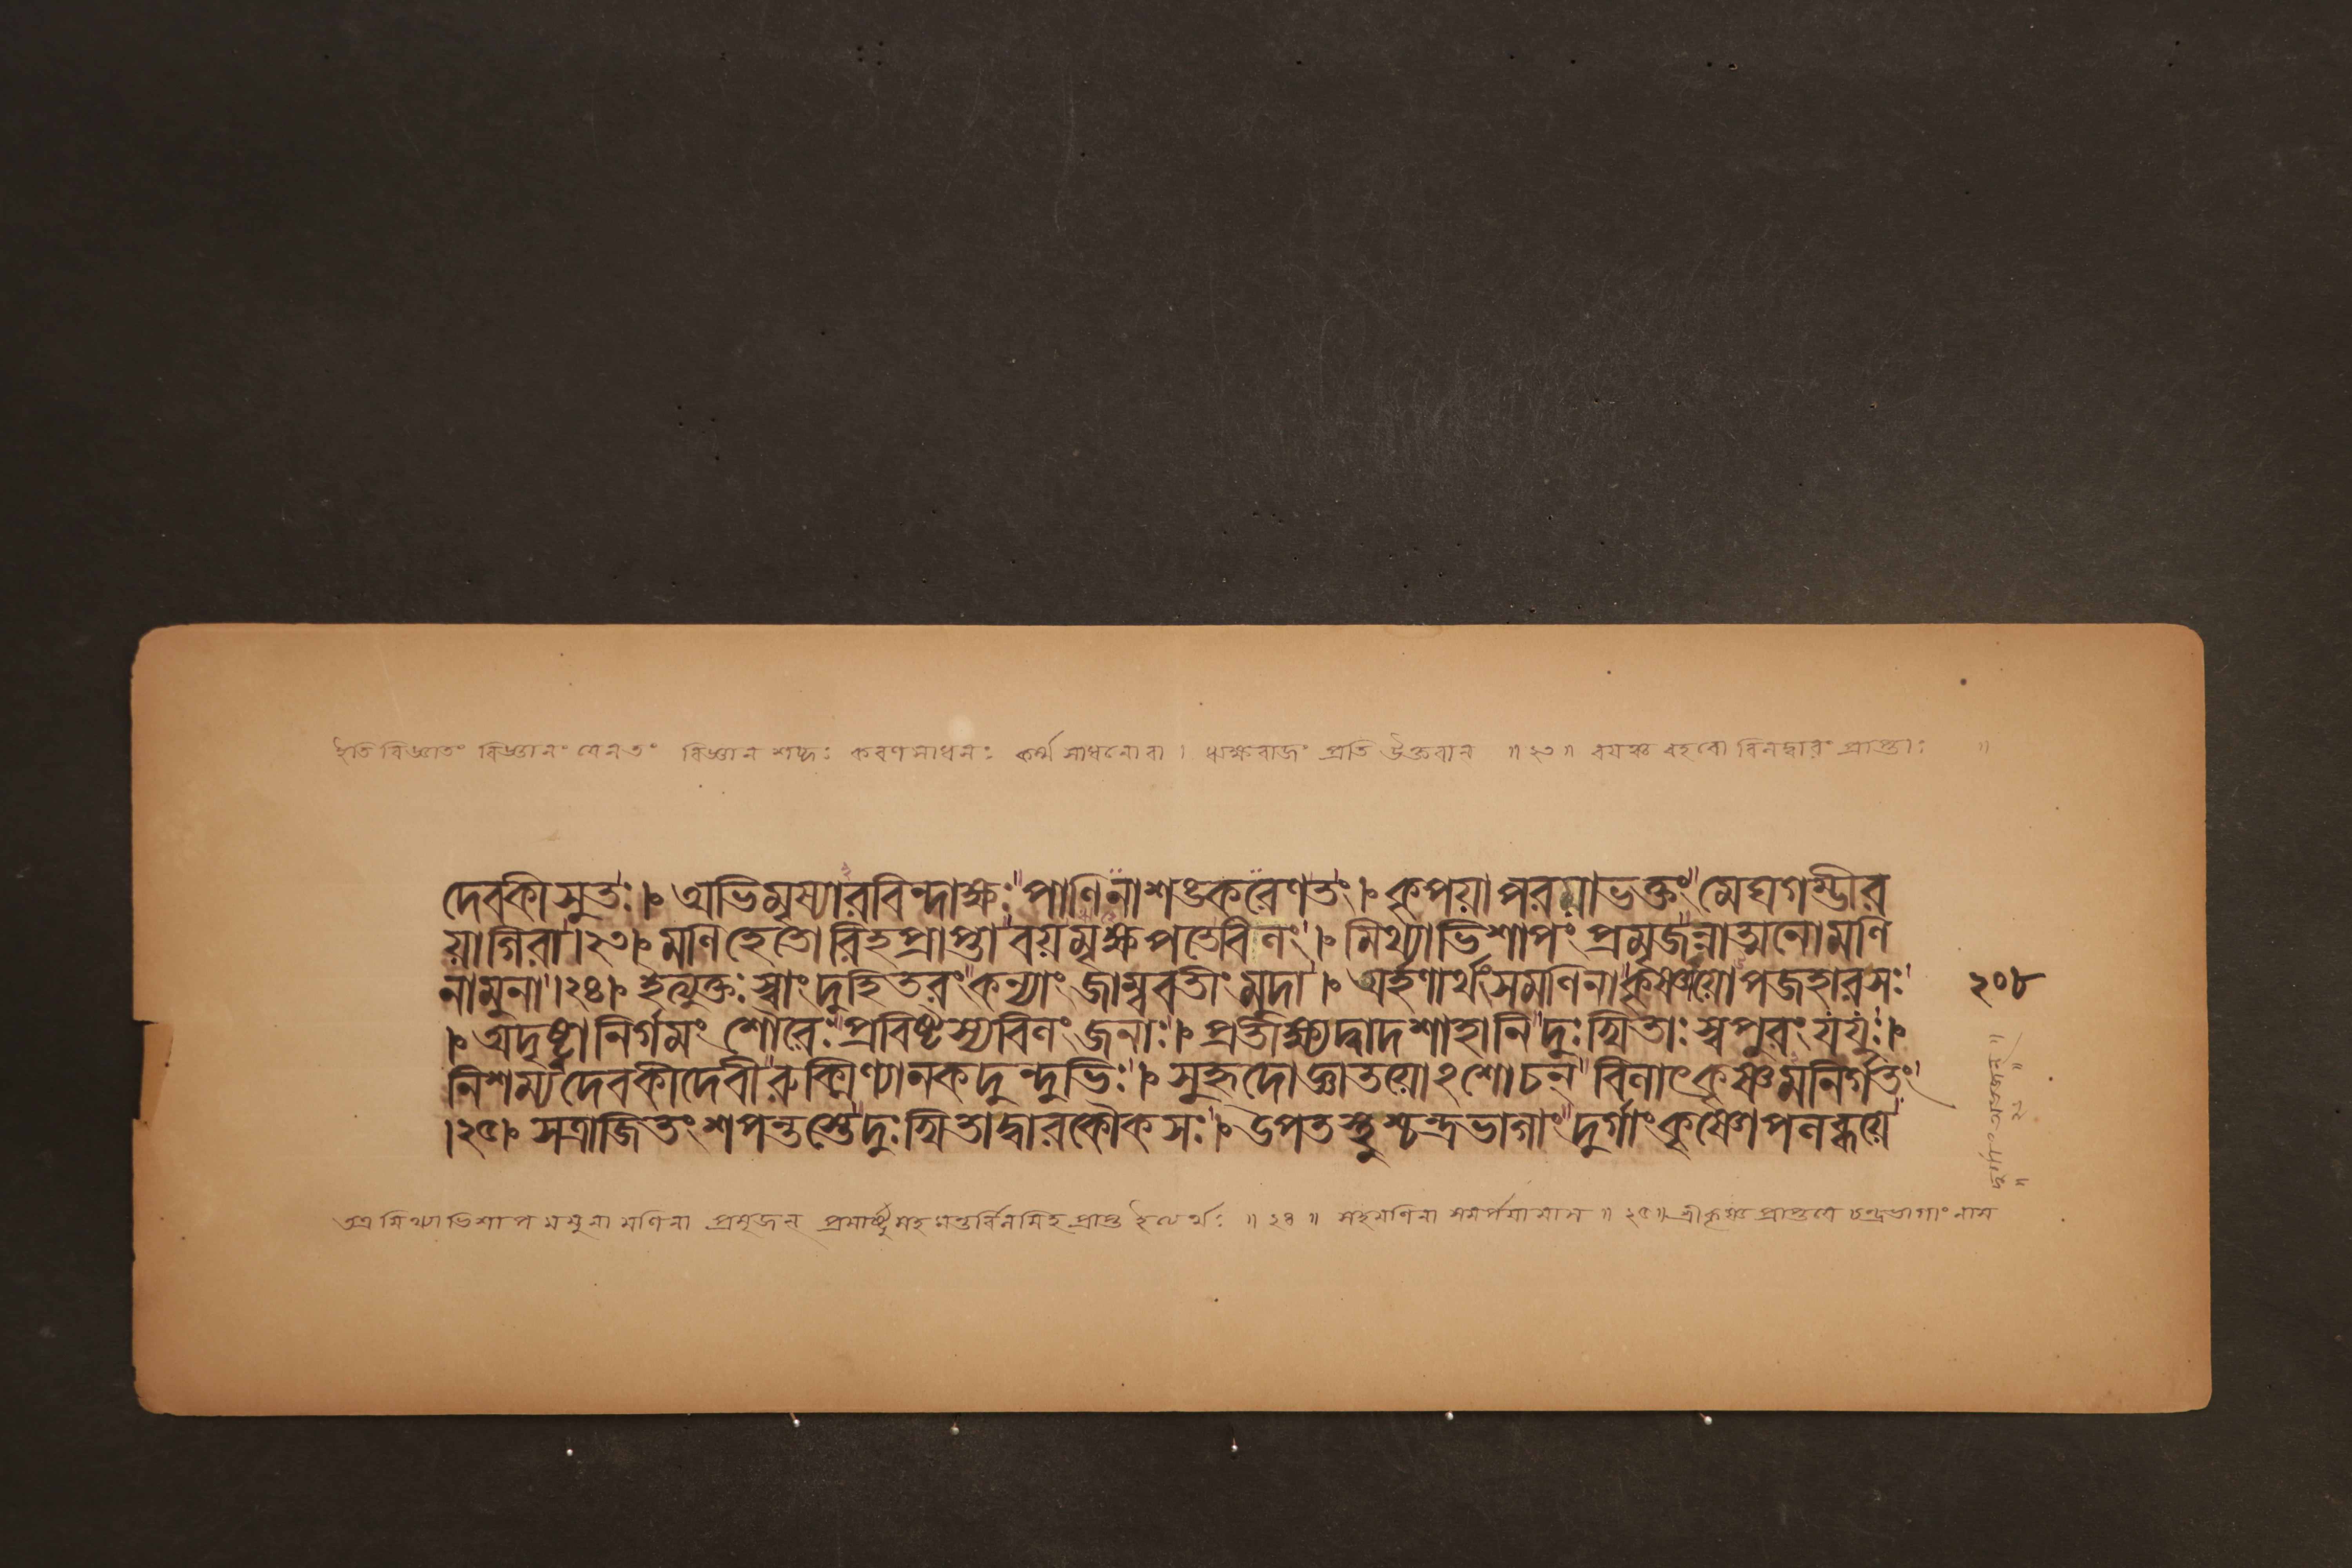 ইতি বিজ্ঞাতং বিজ্ঞানং যেনতং বিজ্ঞান শব্দঃ করণসাধনঃ কর্ম্মসাধনোবা । ঋক্ষরাজং প্রতি উক্তবান্ ॥২৩॥ বয়ঞ্চ বহবো বিলদ্বারং প্রাপ্তাঃ ॥
দেবকীসুতঃ। অভিমৃষ্যারবিন্দাক্ষঃ পাণিনাশঙ্করেণতং। কৃপয়াপরয়াভক্তং মেঘগম্ভীর
য়াগিরা।২৩। মণিহেতোরিহপ্রাপ্তা বয়মৃক্ষপতেবিলং। মিথ্যাভিশাপং প্রমৃজন্নাত্মনোমণি
নামুনা।২৪। ইত্যুক্তঃ স্বাং দুহিতরং কন্যাং জাম্ববতীং মুদা। অর্হণার্থংসমণিনা কৃষ্ণায়োপজহারসঃ
২০৮
। অদৃষ্ট্বানির্গমং শৌরেঃ প্রবিষ্টস্যবিলং জনাঃ। প্রতীক্ষ্যদ্বাদশাহানি দুঃখিতাঃ স্বপুরং যযুঃ।
নিশম্যদেবকীদেবী রুক্মিণ্যানকদুন্দুভিঃ। সুহৃদোজ্ঞাতয়োঽশোচন্ বিলাৎকৃষ্ণমনির্গতং
।২৫। সত্রাজিতংশপন্তস্তে দুঃখিতাদ্বারকৌকসঃ। উপতস্থুশ্চন্দ্রভাগাং দুর্গাংকৃষ্ণোপলব্ধয়ে
অত্র মিথ্যাভিশাপমমুনা মণিনা প্রমৃজন্ প্রমার্ষ্টুমহমন্তর্বিলমিহপ্রাপ্ত ইত্যর্থঃ ॥২৪॥ সহমণিনা সমর্পয়ামাস ॥২৫॥ শ্রীকৃষ্ণপ্রাপ্তয়ে চন্দ্রভাগাং নাম